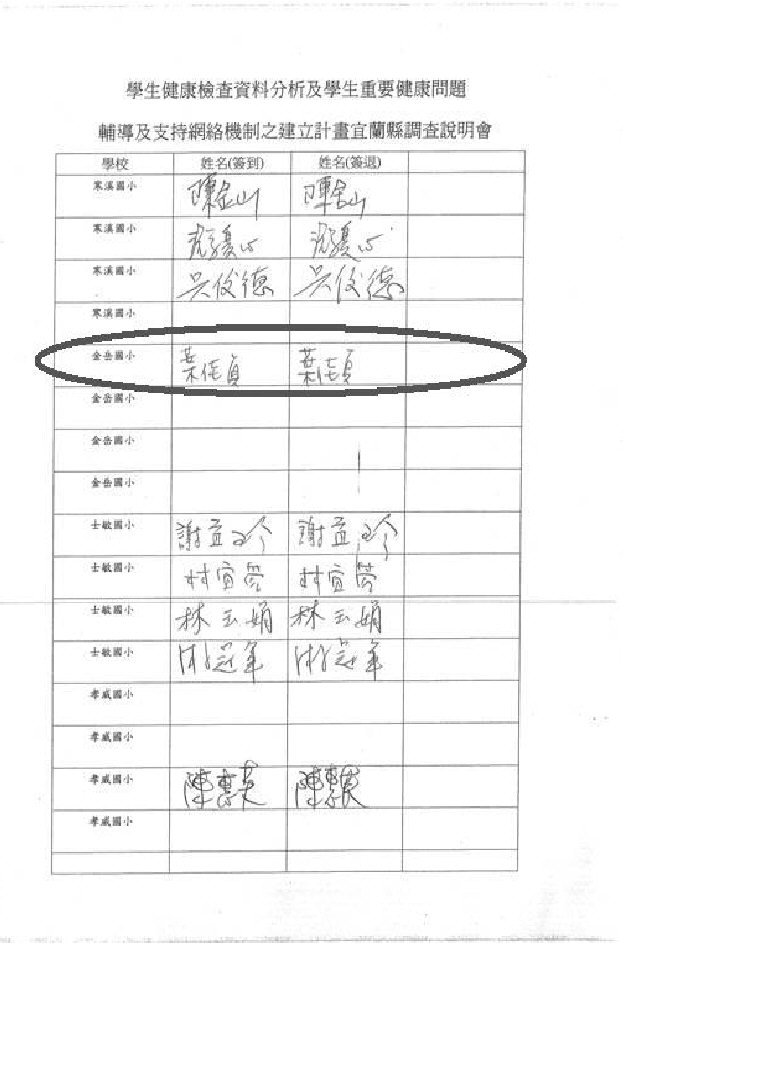 學生健康檢查資料分析及學生重要健康問題
輔導及支持網絡機制之建立計畫宜蘭縣調查說明會
學校 姓名(簽到) 姓名(簽退)
寒溪國小 陳金山 陳金山
寒溪國小
寒溪國小 吳俊德 吳俊德
寒溪國小
金岳國小 葉佳貞 葉佳貞
金岳國小
金岳國小
金岳國小
士敏國小 謝宜珍 謝宜珍
士敏國小 林宜 林宜
士敏國小 林玉娟 林玉娟
士敏國小
孝威國小
孝威國小
孝威國小 陳慧英 陳慧英
孝威國小